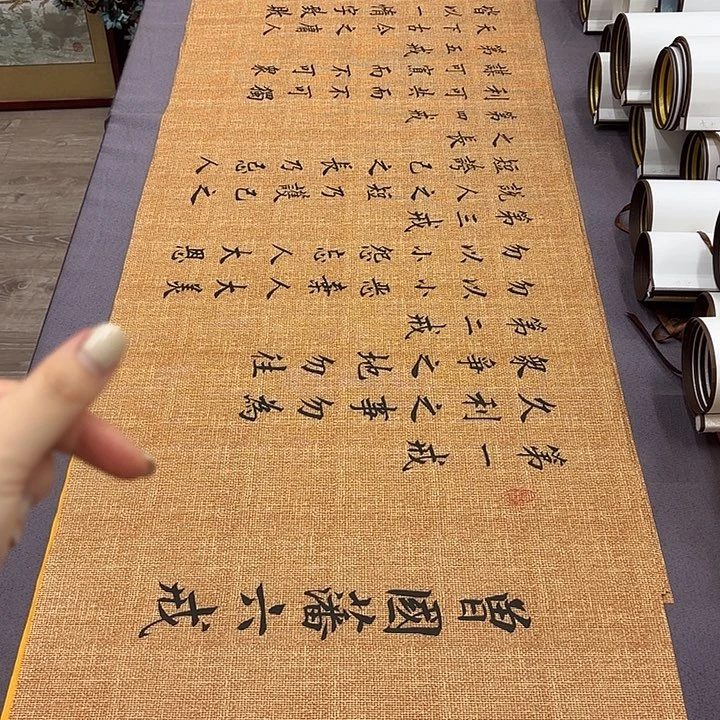 曾國藩六戒
第一戒
久利之事勿為
衆爭之地勿往
第二戒
勿以小惡棄人大美
勿以小怨忘人大恩
第三戒
說人之短乃護己之
短誇己之長乃忌人
之長
第四戒
利可共而不可獨
謀可寡而不可衆
第五戒
天下古今之庸人
皆以一惰字致敗